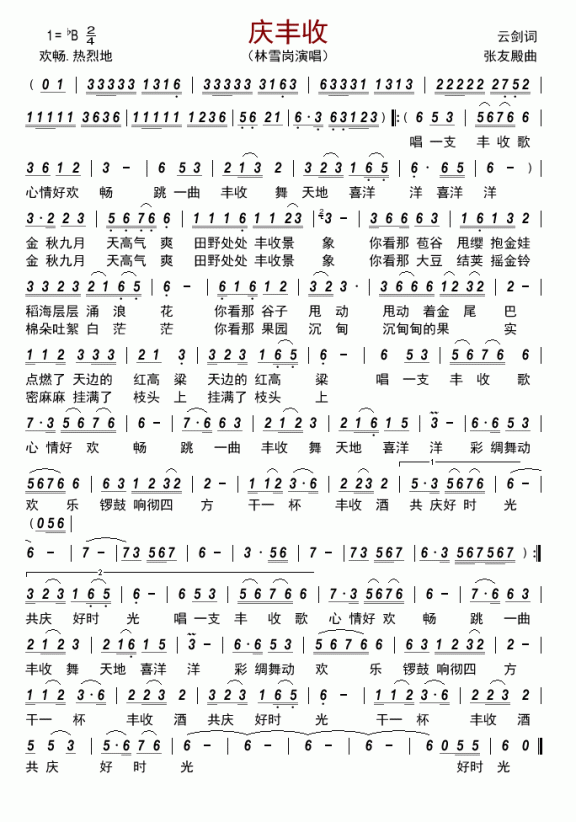 庆丰收
1= ♭B 2/4
云剑词
欢畅. 热烈地
（林雪岗演唱）
张友殿曲
( 0 1 | 33333 1316 | 33333 3163 | 63331 1313 | 22222 2752 |
11111 3636 | 11111 1236 | 56 21 | 6·3 63123 ) ‖:( 6 53 | 5676 6 |
唱 一支 丰 收 歌
36 12 | 3 - | 6 53 | 213 2 | 212 165 | 6· 65 | 6 - ) |
心情好欢 畅 跳 一曲 丰收 舞 天地 喜洋 洋 喜洋 洋
3·2 23 | 5676 6 | 111 6 | 611 23 | 3 - | 366 63 | 313 32 |
金 秋九月 天高气 爽 田野处处 丰收景 象 你看那 苞谷 甩缨 抱金娃
金 秋九月 天高气 爽 田野处处 丰收景 象 你看那 大豆 结荚 摇金铃
33 23 | 2165 5 | 6 - | 616 12 | 332 3 | 323 21 | 2 2 |
稻海层层 涌 浪 花 你看那 谷子 甩 动 甩动 着金 尾 巴
棉朵吐絮 白 茫 茫 你看那 果园 沉 甸 沉甸甸的果 实
11 2 | 33 3 | 21 3 | 323 2 | 323 165 | 6 - | 6 53 | 5676 6 |
点燃了 天边的 红高 粱 天边的 红高 粱 唱 一支 丰 收 歌
密麻麻 挂满了 枝头 上 挂满了 枝头 上
7·3 5676 | 6 - | 7·6 63 | 212 3 | 2 2123 | 216 15 | 3 - | 6·6 53 |
心 情好 欢 畅 跳 一曲 丰收 舞 天地 喜洋 洋 彩 绸舞动
5676 6 | 63 1232 | 2 - | 112 3·6 | 223 2 | 5·3 5676 | 6 - |
欢 乐 锣鼓 响彻四 方 干一 杯 丰收 酒 共 庆好 时 光
(056
6 - | 7 - | 73 567 | 6 - | 3· 56 | 7 - | 73 567 | 6·3 567567 ):‖
323 165 | 6 - | 6 53 | 5676 6 | 7·3 5676 | 6 - | 7·6 63 |
共庆 好时 光 唱 一支 丰 收 歌 心 情好 欢 畅 跳 一曲
212 3 | 216 15 | 3 - | 6·6 53 | 5676 6 | 63 1232 | 2 - |
丰收 舞 天地 喜洋 洋 彩 绸舞动 欢 乐 锣鼓 响彻四 方
112 3·6 | 223 2 | 323 165 | 6 - | 112 3·6 | 223 2 |
干一 杯 丰收 酒 共庆 好时 光 干一 杯 丰收 酒
5 53 | 5·6 76 | 6 - | 6 - | 6 - | 6 - | 6 055 | 6 0 ‖
共 庆 好 时 光 好时 光